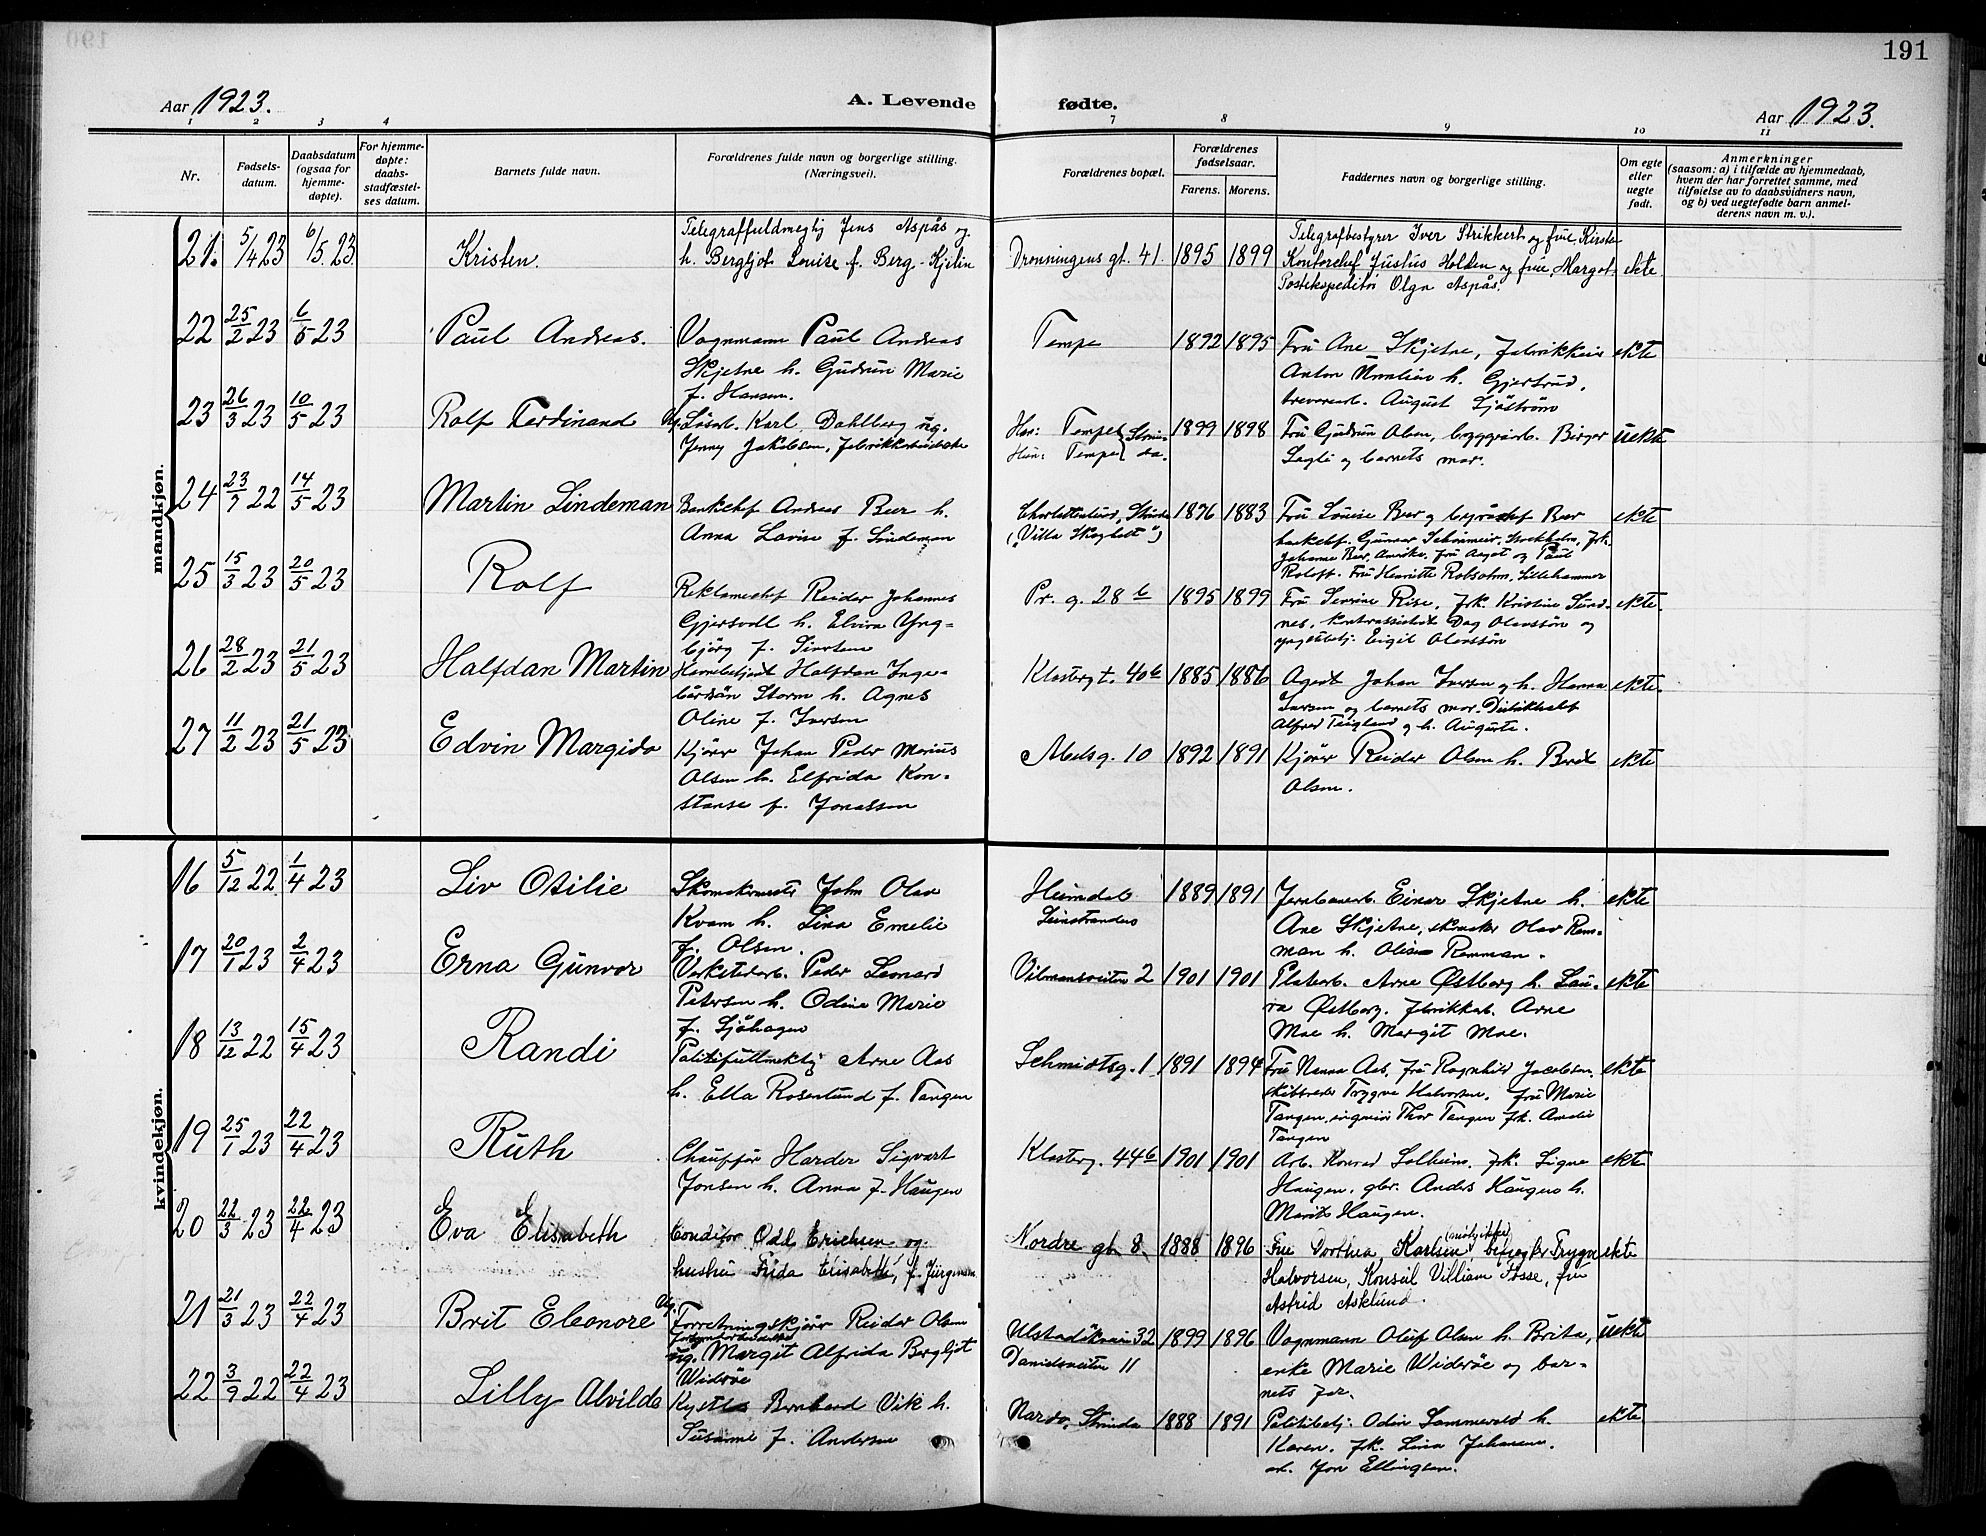 191
Aar 1923.
A. Levende fødte.
Aar 1923.
1 2 3 4 7 8 9 10 11
Nr.
Fødsels-
datum.
Daabsdatum
(ogsaa for
hjemme-
døpte).
For hjemme-
døpte:
daabs-
stadfæstel-
ses datum.
Barnets fulde navn.
Forældrenes fulde navn og borgerlige stilling.
(Næringsvei).
Forældrenes bopæl.
Forældrenes
fødselsaar.
Farens. Morens.
Faddernes navn og borgerlige stilling.
Om egte
eller
uegte
født.
Anmerkninger
(saasom: a) i tilfælde av hjemmedaab,
hvem der har forrettet samme, med
tilføielse av to daabsvidners navn,
og b) ved uegtefødte barn anmel-
derens navn m. v.).
mandkjøn.
21. 5/4 23 6/5. 23 Kristen.
Telegraffuldmegtig Jens Aspås og
h. Bergljot Louise f. Berg-Kjelin
Dronningens gt. 41. 1895 1899
Telegrafbestyrer Iver Strikkert og frue, Kirsten
Kontorchef Justus Holden og frue, Margot
Postekspeditør Olga Aspås.
ekte
22 25/2 23 6/5 23 Paul Andreas.
Vognmann Paul Andreas
Skjetne h. Gudrun Marie
f. Hansen.
Tempe 1892 1895
Fru Ane Skjetne, fabrikkeier
Anton h. Gjertrud,
August Sjöström
ekte
23 26/3 23 10/5 23 Rolf Ferdinand
Ug. Løsarb. Karl Dahlberg ug.
Jenny Jakobsen, fabrikkarbeiderske
Han: Tempe
Hun: Tempe
Strinda.
1899 1898
Fru Gudrun Olsen, byggarb. Birger
og barnets mor.
uekte
24 23/7 22 14/5 23 Martin Lindeman
Bankchef Andreas Beer h.
Anna Lovise f. Lindeman
Charlottenlund, Strinda
("Villa ")
1876 1883
Fru Louise Beer og byråchef Beer
bankchef. Gunnar Stockholm, frk.
Johanna Beer, fru Aagot og Paul
Roloft. Fru Henriette Robsahm, Lillehammer
ekte
25 15/3 23 20/5 23 Rolf
Reklamechef Reidar Johannes
Gjersvoll h. Elvira Yng-
björg f. Sivertsen
Pr. g. 28 b 1895 1899
Fru Severine Rise, frk. Kristine Sund-
nes, Dag Olavssön og
Eigil Olavssön
ekte.
26 28/2 23 21/5 23 Halfdan Martin
Handelsbetjent Halfdan Inge-
Storm h. Agnes
Oline f. Iversen
Klosterg t. 40 b 1885 1886
Agent Johan Iversen og h. Hanna
Iversen og barnets mor. Distriktschef
Alfred Teigland og h. Augusta.
ekte.
27 11/2 23 21/5 23 Edvin Margido
Kjörer Johan Peder Marius
Olsen h. Elfrida Kon-
stanse f. Jonasson
Melsg. 10 1892 1891
Kjörer Reidar Olsen h. Brit
Olsen.
ekte
kvindekjøn.
16 5/12 22 1/4 23 Liv Otilie
Skomakermester John Olav
Kvam h. Lina Emelie
f. Olsen.
Heimdal
Leinstranden
1889 1891
Jernbanearb. Einar Skjetne h.
Ane Skjetne, skomaker Olav Rem-
man h. Olise Remman.
ekte
17 20/1 23 2/4 23 Erna Gunvor
Verkstedarb. Peder Leonard
Petersen h. Odine Marie
f. Sjöhagen
Vilmansveiten 2 1901 1901
Platearb. Arne Østborg h. Lau-
ra Østborg. fabrikkarb. Arne
Moe h. Margit Moe.
ekte
18 13/12 22 15/4 23 Randi
Politifullmektig Arne Aas
h. Ella Rosenlund f. Tangen
Schmidtsg. 1 1891 1894
Fru Nanna Aas, Fru Ragnhild Jacobsen,
skibsreder Trygve Halvorsen, fru Marie
Tangen, ingeniör Thor Tangen frk. Amelie
Tangen
ekte
19 25/1 23 22/4 23 Ruth
Chauffør Harder Sigvart
Jonsen h. Anna f. Haugen
Klosterg. 44 b 1901 1901
Arb. Konrad Solheim, frk. Signe
Haugen, gbr. Anders Haugen h.
Marit Haugen.
ekte
20 22/3 23 22/4 23 Eva Elisabeth
Conditor Odd Erichsen og
hustru Frida Elisabeth, f. Jürgensen
Nordre gt. 8, 1888 1896
Frue Dorthea Karlsen, Trygve
Halvorsen, Konsul Villiam Fosse, frue
Astrid Asklund.
ekte
21 21/3 23 22/4 23 Brit Eleonore
Ug. Forretningskjörer Reidar Olsen
ug. Margit Alfrida Bergljot
Widröe
32
Danielsveiten 11
1899 1896
Vognmann Oluf Olsen h. Brita,
enke Marie Widröe og bar-
nets far.
uekte
22 3/9 22 22/4 23 Lilly Alvilde
Bernhard Vik h.
Susanne f. Andersen
Nardo, Strinda 1888 1891
Politibetj. Odin Sommervold h.
Karen. frk. Lina Johansen.
arb. Jon Ellingsen.
ekte